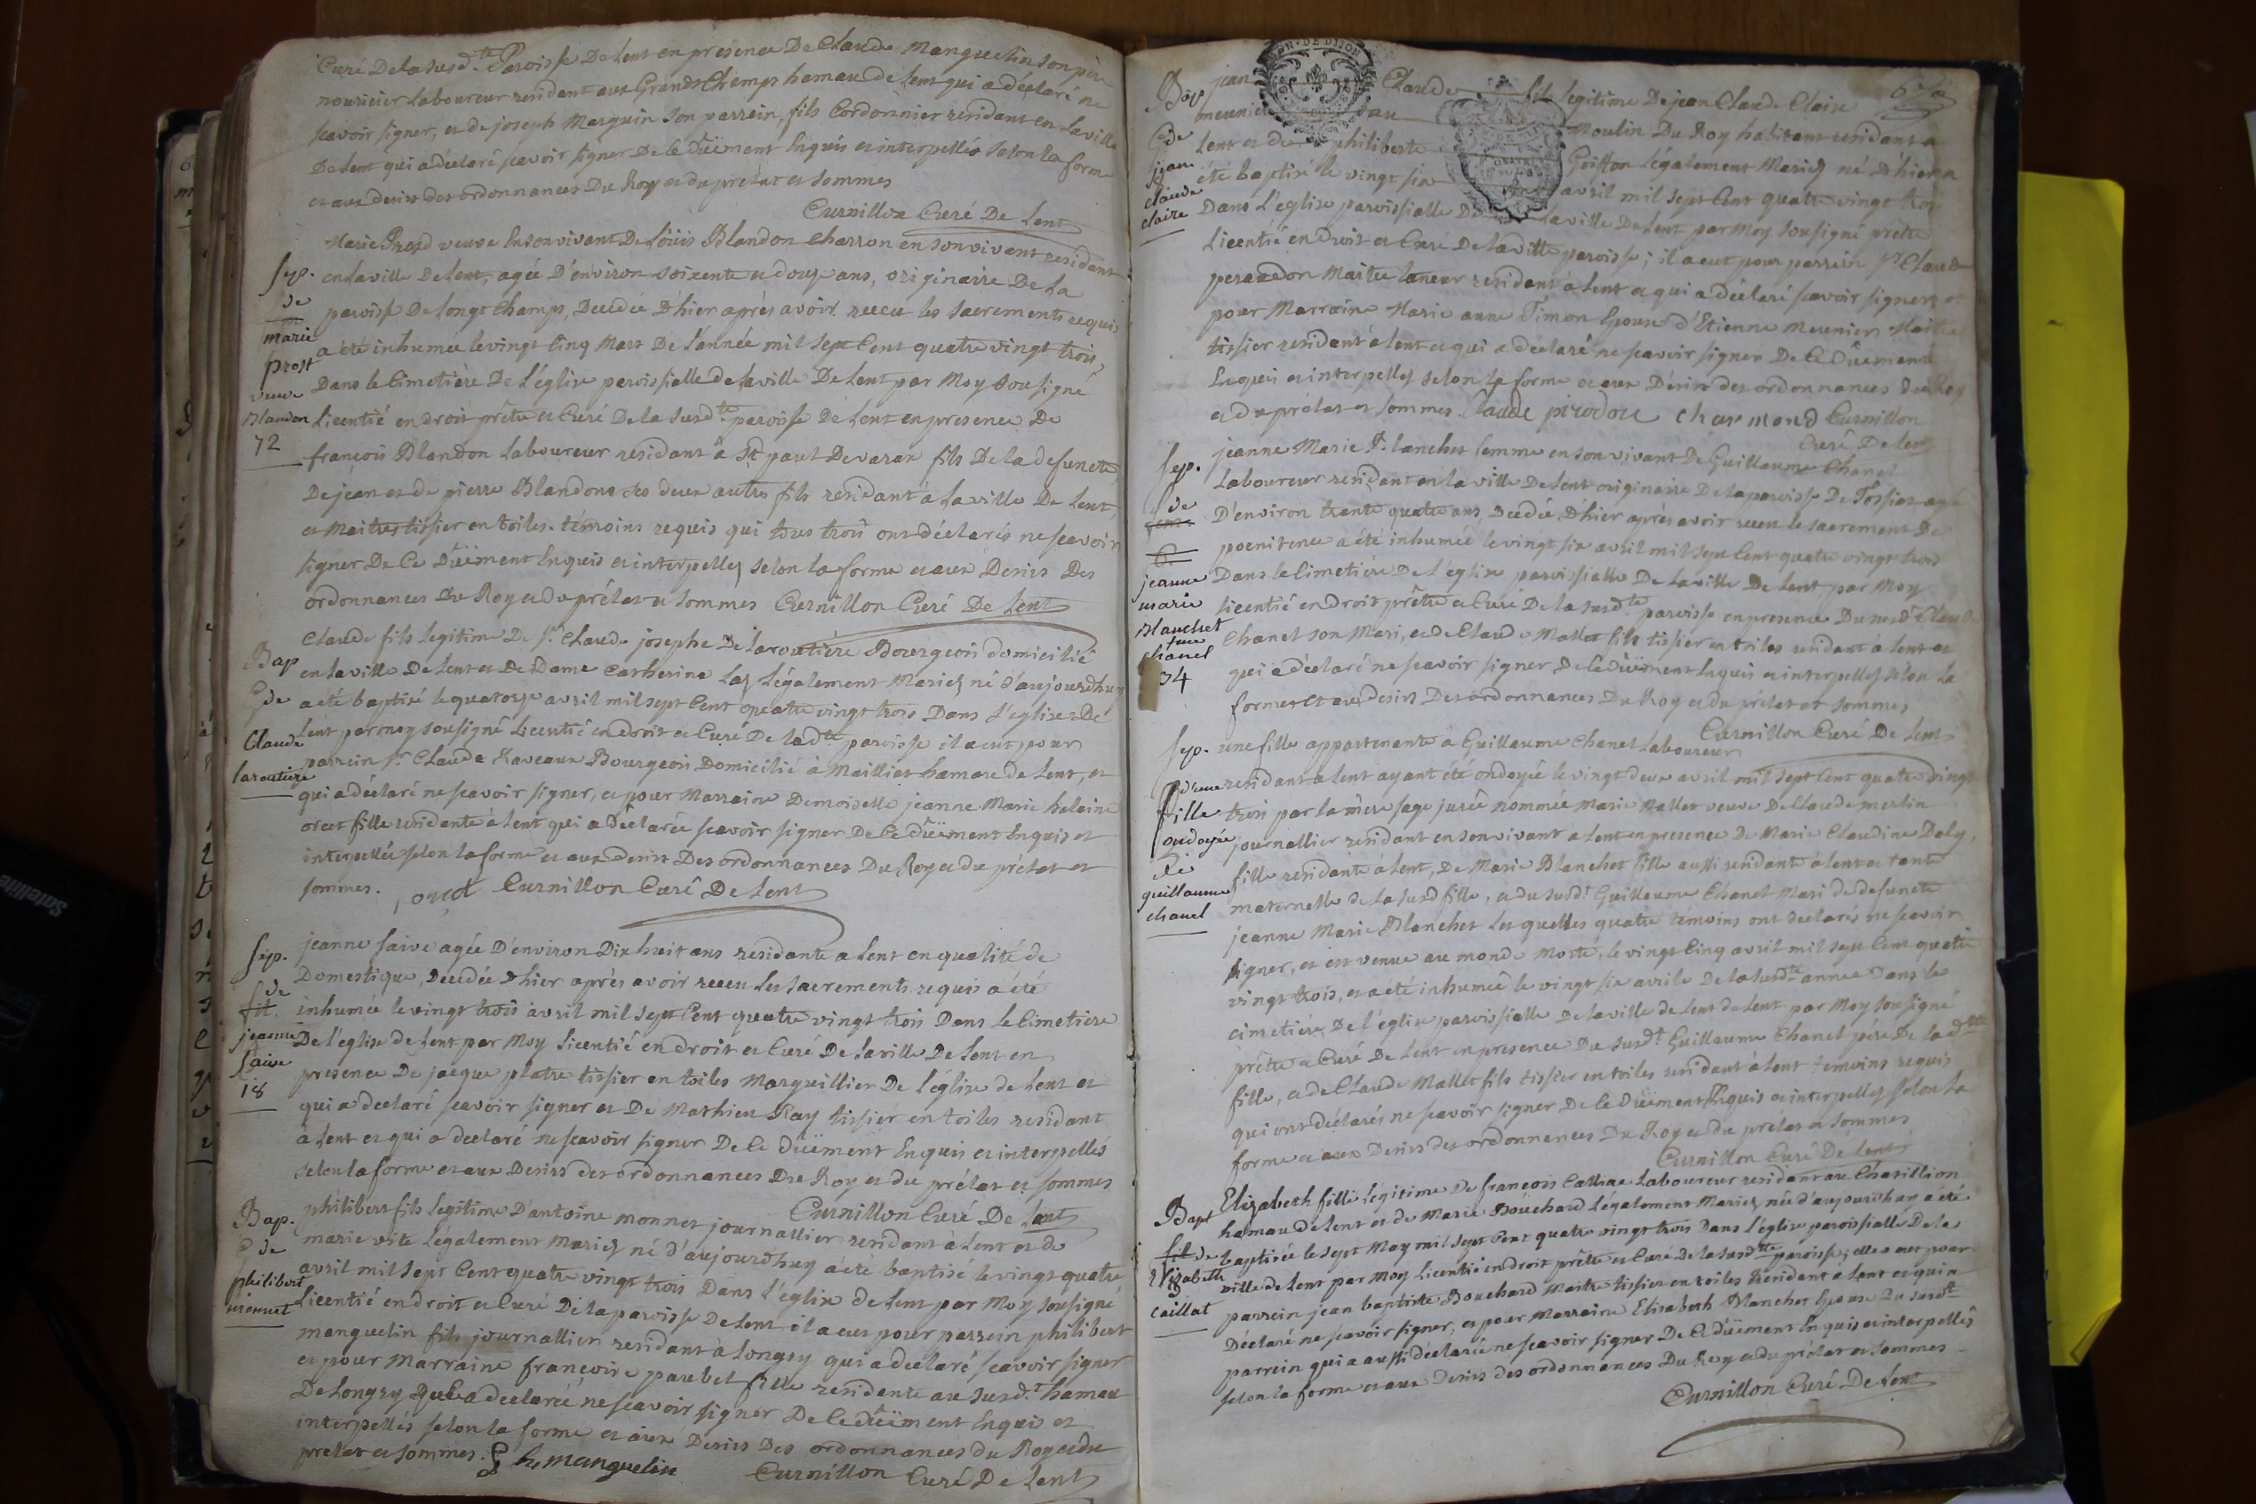 Curé De la susd.te Paroisse De Lent en presence De Claude Manguelin son père
nouricier Laboureur residant aux Grands Champs hamau de Lent qui a déclaré ne
scavoir signer, et de joseph Marguin son parrein, fils Cordonnier residant en la ville
De Lent qui a déclaré scavoir signer De Ce Düement Enquis et interpellés selon la forme
et aux desirs des ordonnances Du Roy et du prélat et sommes
Curnillon Curé De Lent
Sep.
de
marie
prost
veuve
Blandon
72
Marie Prost veuve En son vivant De Loüis Blandon Charron en son vivant residant
en la ville De Lent, agée D'environ soixente et douze ans, originaire De La
paroisse De Longt Champs, Decedée D'hier après avoir reecu les sacrements requis
a été inhumée le vingt Cinq Mars De L'année mil sept Cent quatre vingt trois,
Dans le Cimetière De L'église paroissialle de la ville De Lent par Moy sousigné
Licentié en droit prêtre et Curé De la susd.te paroisse De Lent en presence De
françois Blandon Laboureur residant à St paul De varax fils De la defuncte
De jean et de pierre Blandons ses deux autres fils residant à La ville De Lent,
et Maitres tissier en toiles témoins requis qui tous trois ont déclarés ne scavoir
signer De Ce Düement Enquis et interpellez selon la forme et aux Desirs Des
ordonnances Du Roy et du prélat et sommes Curnillon Curé De Lent
Bap
de
Claude
laroutiere
Claude fils legitime De Sr. Claude josephe De laroutière Bourgeois domicilié
en la ville De Lent et De Dame Catherine Laz Légalement Mariez né d'aujourdhuy
a été baptisé le quatorze avril mil sept Cent quatre vingt trois Dans L'eglise De
Lent par moy sousigné Licentié en droit et Curé De la d.te paroisse il a eut pour
parrein Sr. Claude Raveaux Bourgeois Domicilié à Mailliat hamau de Lent, et
qui a déclaré ne scavoir signer, et pour Marraine Demoiselle jeanne Marie helaine
orcet fille residante à Lent qui a Déclarée scavoir signer De Ce düement Enquis et
interpellée selon la forme et aux desirs Des ordonnances Du Roy et du prélat et
sommes. orcet Curnillon Curé De Lent
Sep.
de
jeanne
saive
18
jeanne saive agée D'environ Dix huit ans residante a Lent en qualité de
Domestique, Decedée d'hier après avoir reecu Les sacrements requis a été
inhumée le vingt trois avril mil sept Cent quatre vingt trois Dans le Cimetiere
De l'église de Lent par Moy Licentié en droit et Curé De la ville De Lent en
presence De jacque platre tissier en toiles Marguillier De l'église de Lent et
qui a declaré scavoir signer et De Mathieu Ray tissier en toiles residant
à Lent et qui a declaré ne scavoir signer De Ce düement Enquis et interpellés
selon la forme et aux Desirs des ordonnances Du Roy et du prélat et sommes
Curnillon Curé De Lent
Bap.
de
philibert
monnet
philibert fils legitime D'antoine monnet journallier residant à Lent et de
marie vite Légalement Mariez né d'aujourdhuy a été baptisé le vingt quatre
avril mil sept Cent quatre vingt trois Dans L'église de Lent par Moy sousigné
Licentié en droit et Curé De la paroisse De Lent il a eut pour parrein philibert
manguelin fils journallier residant à Longry qui a declaré scavoir signer
et pour Marraine françoise paubel fille residente au susd.t hamau
De Longry qui a declarée ne scavoir signer De Ce düement Enquis et
interpellés selon la forme et aux Desirs Des ordonnances du Roy et du
prelat et sommes. manguelin Curnillon Curé De Lent
Bap
de
jean
claude
claire
jean Claude fils legitime De jean Claude Claire
meunier au Moulin Du Roy habitant residant a
Lent et de philiberte Goiffon légalement Mariez né D'hier a
été baptisé le vingt six avril mil sept Cent quatre vingt trois
Dans L'eglise paroissialle De La ville De Lent par Moy sousigné prêtre
Licentié en droit et Curé De la ditte paroisse; il a eut pour parrein Sr. Claude
peraudon Maitre laneur residant à Lent et qui a déclaré scavoir signer, et
pour Marraine Marie anne Timon Epouse d'Etienne Meunier Maitre
tissier residant à Lent et qui a déclaré ne scavoir signer De Ce Düement
Enquis et interpellez selon la forme et aux Desirs des ordonnances du Roy
et du prélat et sommes. Claude pirodon charmond Curnillon
Curé De Lent
Sep.
de
jeanne
marie
Blanchet
chanel
34
jeanne Marie Blanchet femme en son vivant De Guillaume Chanel
Laboureur residant en la ville De Lent originaire De la paroisse De Tossiat agée
D'environ trante quatre ans, Decedée D'hier après avoir reecu le sacrement De
poenitence a été inhumée le vingt six avril mil sept Cent quatre vingt trois
Dans le Cimetière De L'église paroissialle De la ville De Lent par Moy
Licentié en droit prêtre et Curé De la susd.te paroisse en presence Du susd.t Claude
Chanel son Mari, et de Claude Mallet fils tissier en toiles residant à Lent et
qui a déclaré ne scavoir signer De Ce düement Enquis et interpellez selon la
forme et aux desirs Des ordonnances Du Roy et du prélat et sommes
Curnillon Curé De Lent
Sep.
d'une
fille
ondoyée
de
guillaume
chanel
une fille appartenante à Guillaume Chanel Laboureur
residant à Lent ayant été ondoyée le vingt deux avril mil sept Cent quatre vingt
trois par la mère sage jurée nommée Marie Mallet veuve De Claude merlin
journallier residant en son vivant a Lent en presence De Marie Claudine Daly,
fille residante à Lent, De Marie Blanchet fille aussi residante à Lent et tante
maternelle de la susd fille, et du susd.t Guillaume Chanel Mari de defuncte
jeanne Marie Blanchet Les quelles quatre temoins ont declarés ne scavoir
signer, et est venue au monde Morte, le vingt Cinq avril mil sept Cent quatre
vingt trois, et a été inhumée le vingt six avril De la susd.te année Dans le
cimetière De l'église paroissialle De la ville de Lent de Lent par Moy sousigné
prêtre et Curé De Lent en presence Du susd.t Guillaume Chanel père De la d.tte
fille, et de Claude Mallet fils tissier en toiles residant à Lent temoins requis
qui ont déclarés ne scavoir signer De Ce Düement Enquis et interpellez selon la
forme et aux Desirs des ordonnances Du Roy et du prélat et sommes
Curnillon Curé De Lent
Bapt
de
Elizabeth
caillat
Elizabeth fille legitime De françois Calliat Laboureur residant au Chatillion
hamau de Lent et de Marie Bouchard Légalement Mariez née d'aujourdhuy a été
baptisée le sept May mil sept Cent quatre vingt trois Dans l'église paroissialle De la
ville de Lent par Moy Licentié en droit prêtre et Curé De la susd.tte paroisse; elle a eut pour
parrein jean baptiste Bouchard Maitre tissier en toiles residant à Lent et qui a
Déclaré ne scavoir signer, et pour Marraine Elisabeth Blanchet Epouse Du susd.t
parrein qui a aussi declarée ne scavoir signer De Ce düement Enquis et interpellés
selon la forme et aux Desirs des ordonnances Du Roy et du prélat et sommes
Curnillon Curé De Lent
Satellite